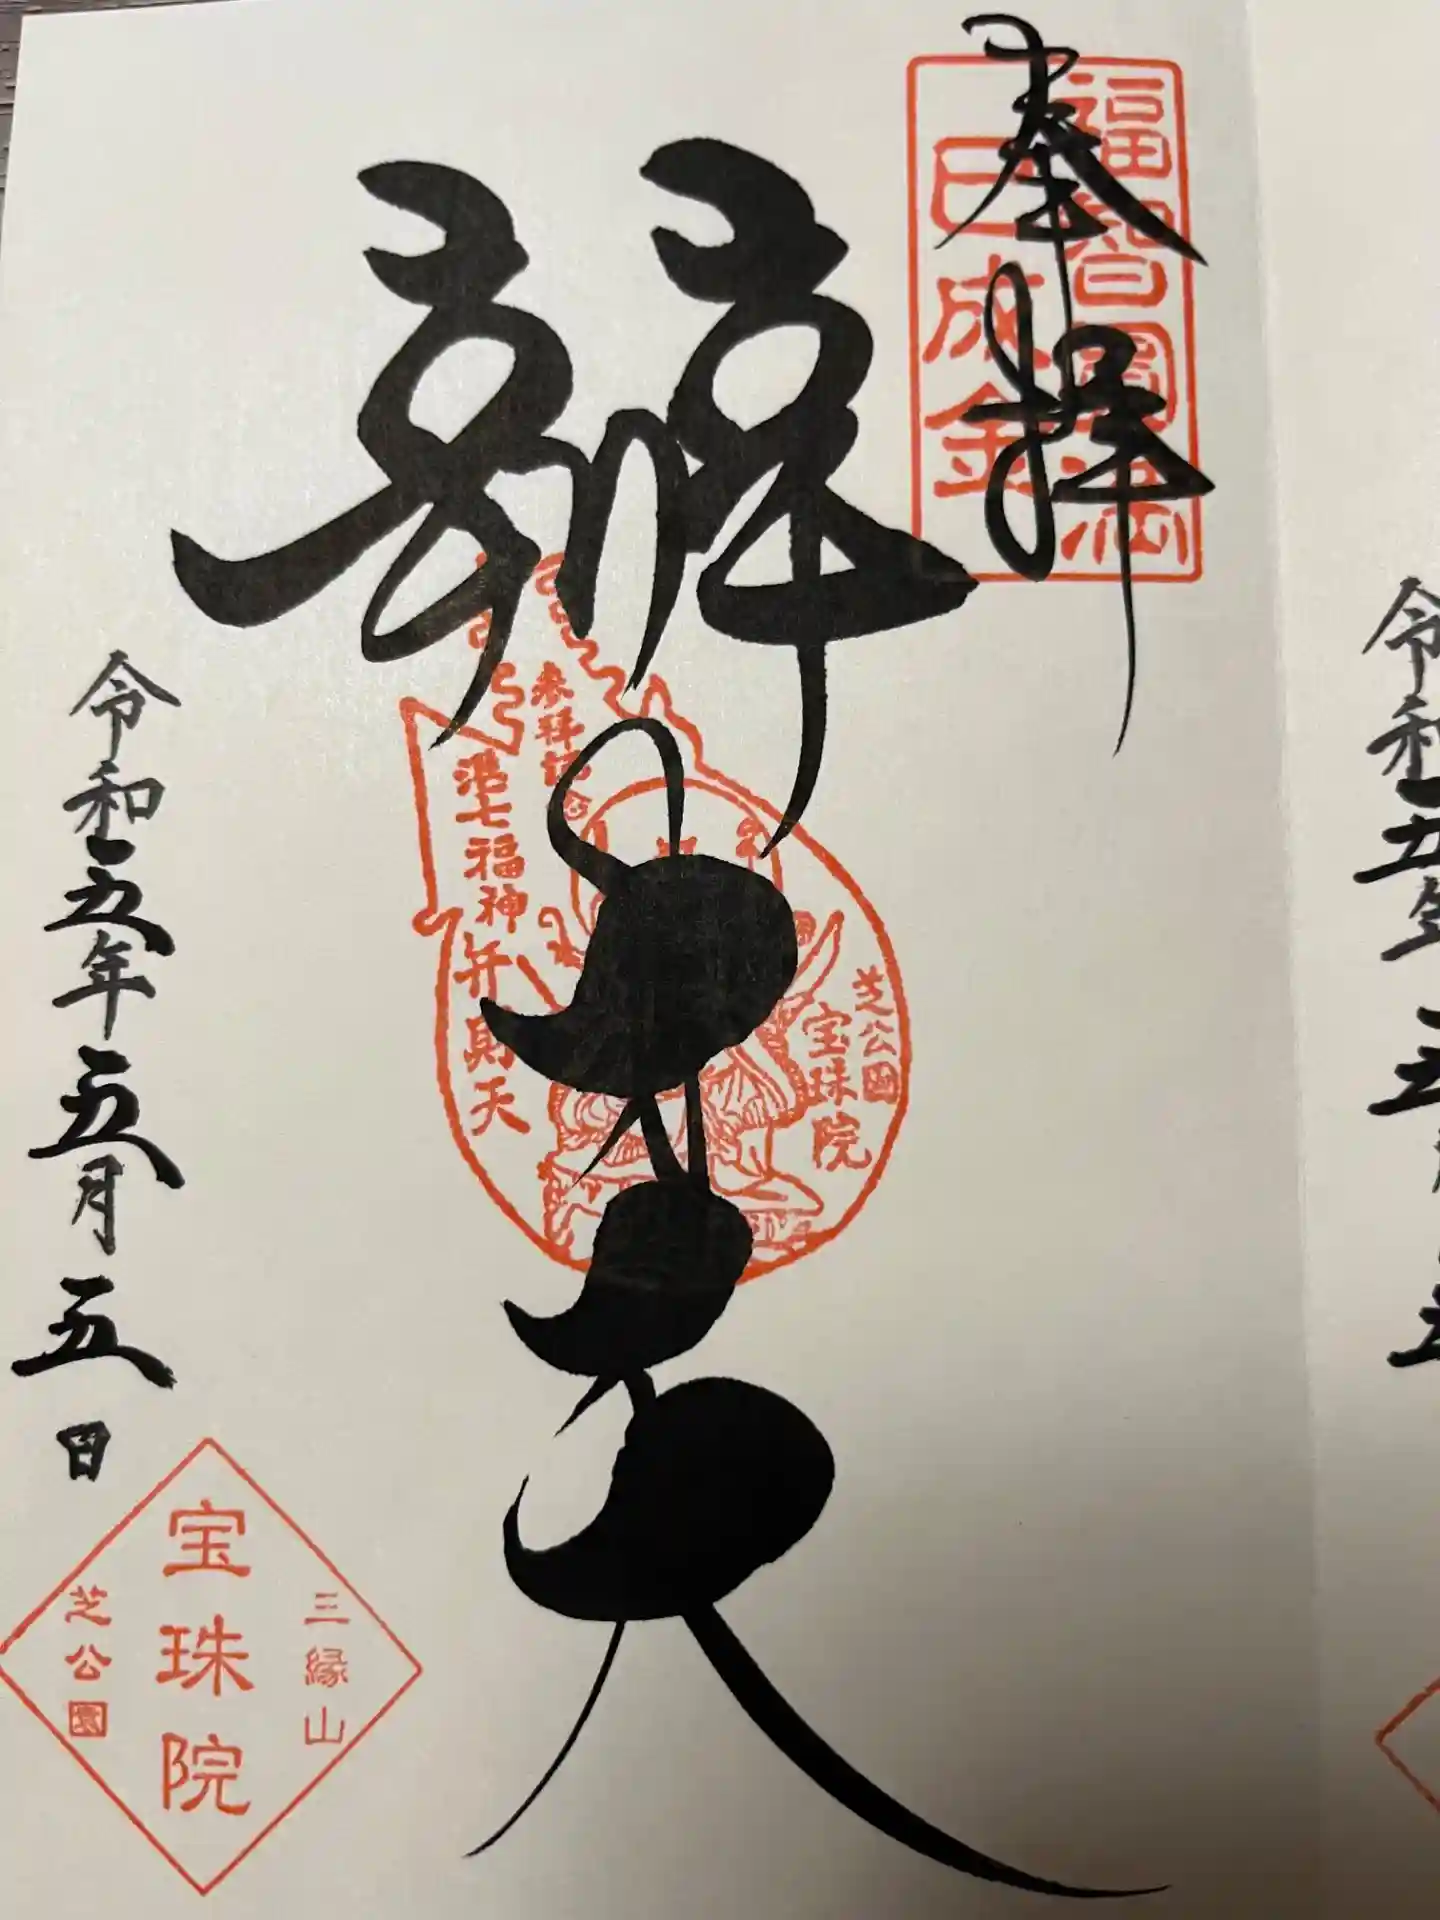 奉拝
福智円満
巳成金
辨才天
参拝記念
港七福神
弁財天
芝公園
宝珠院
令和五年五月五日
三縁山
宝珠院
芝公園
令和五年五月五